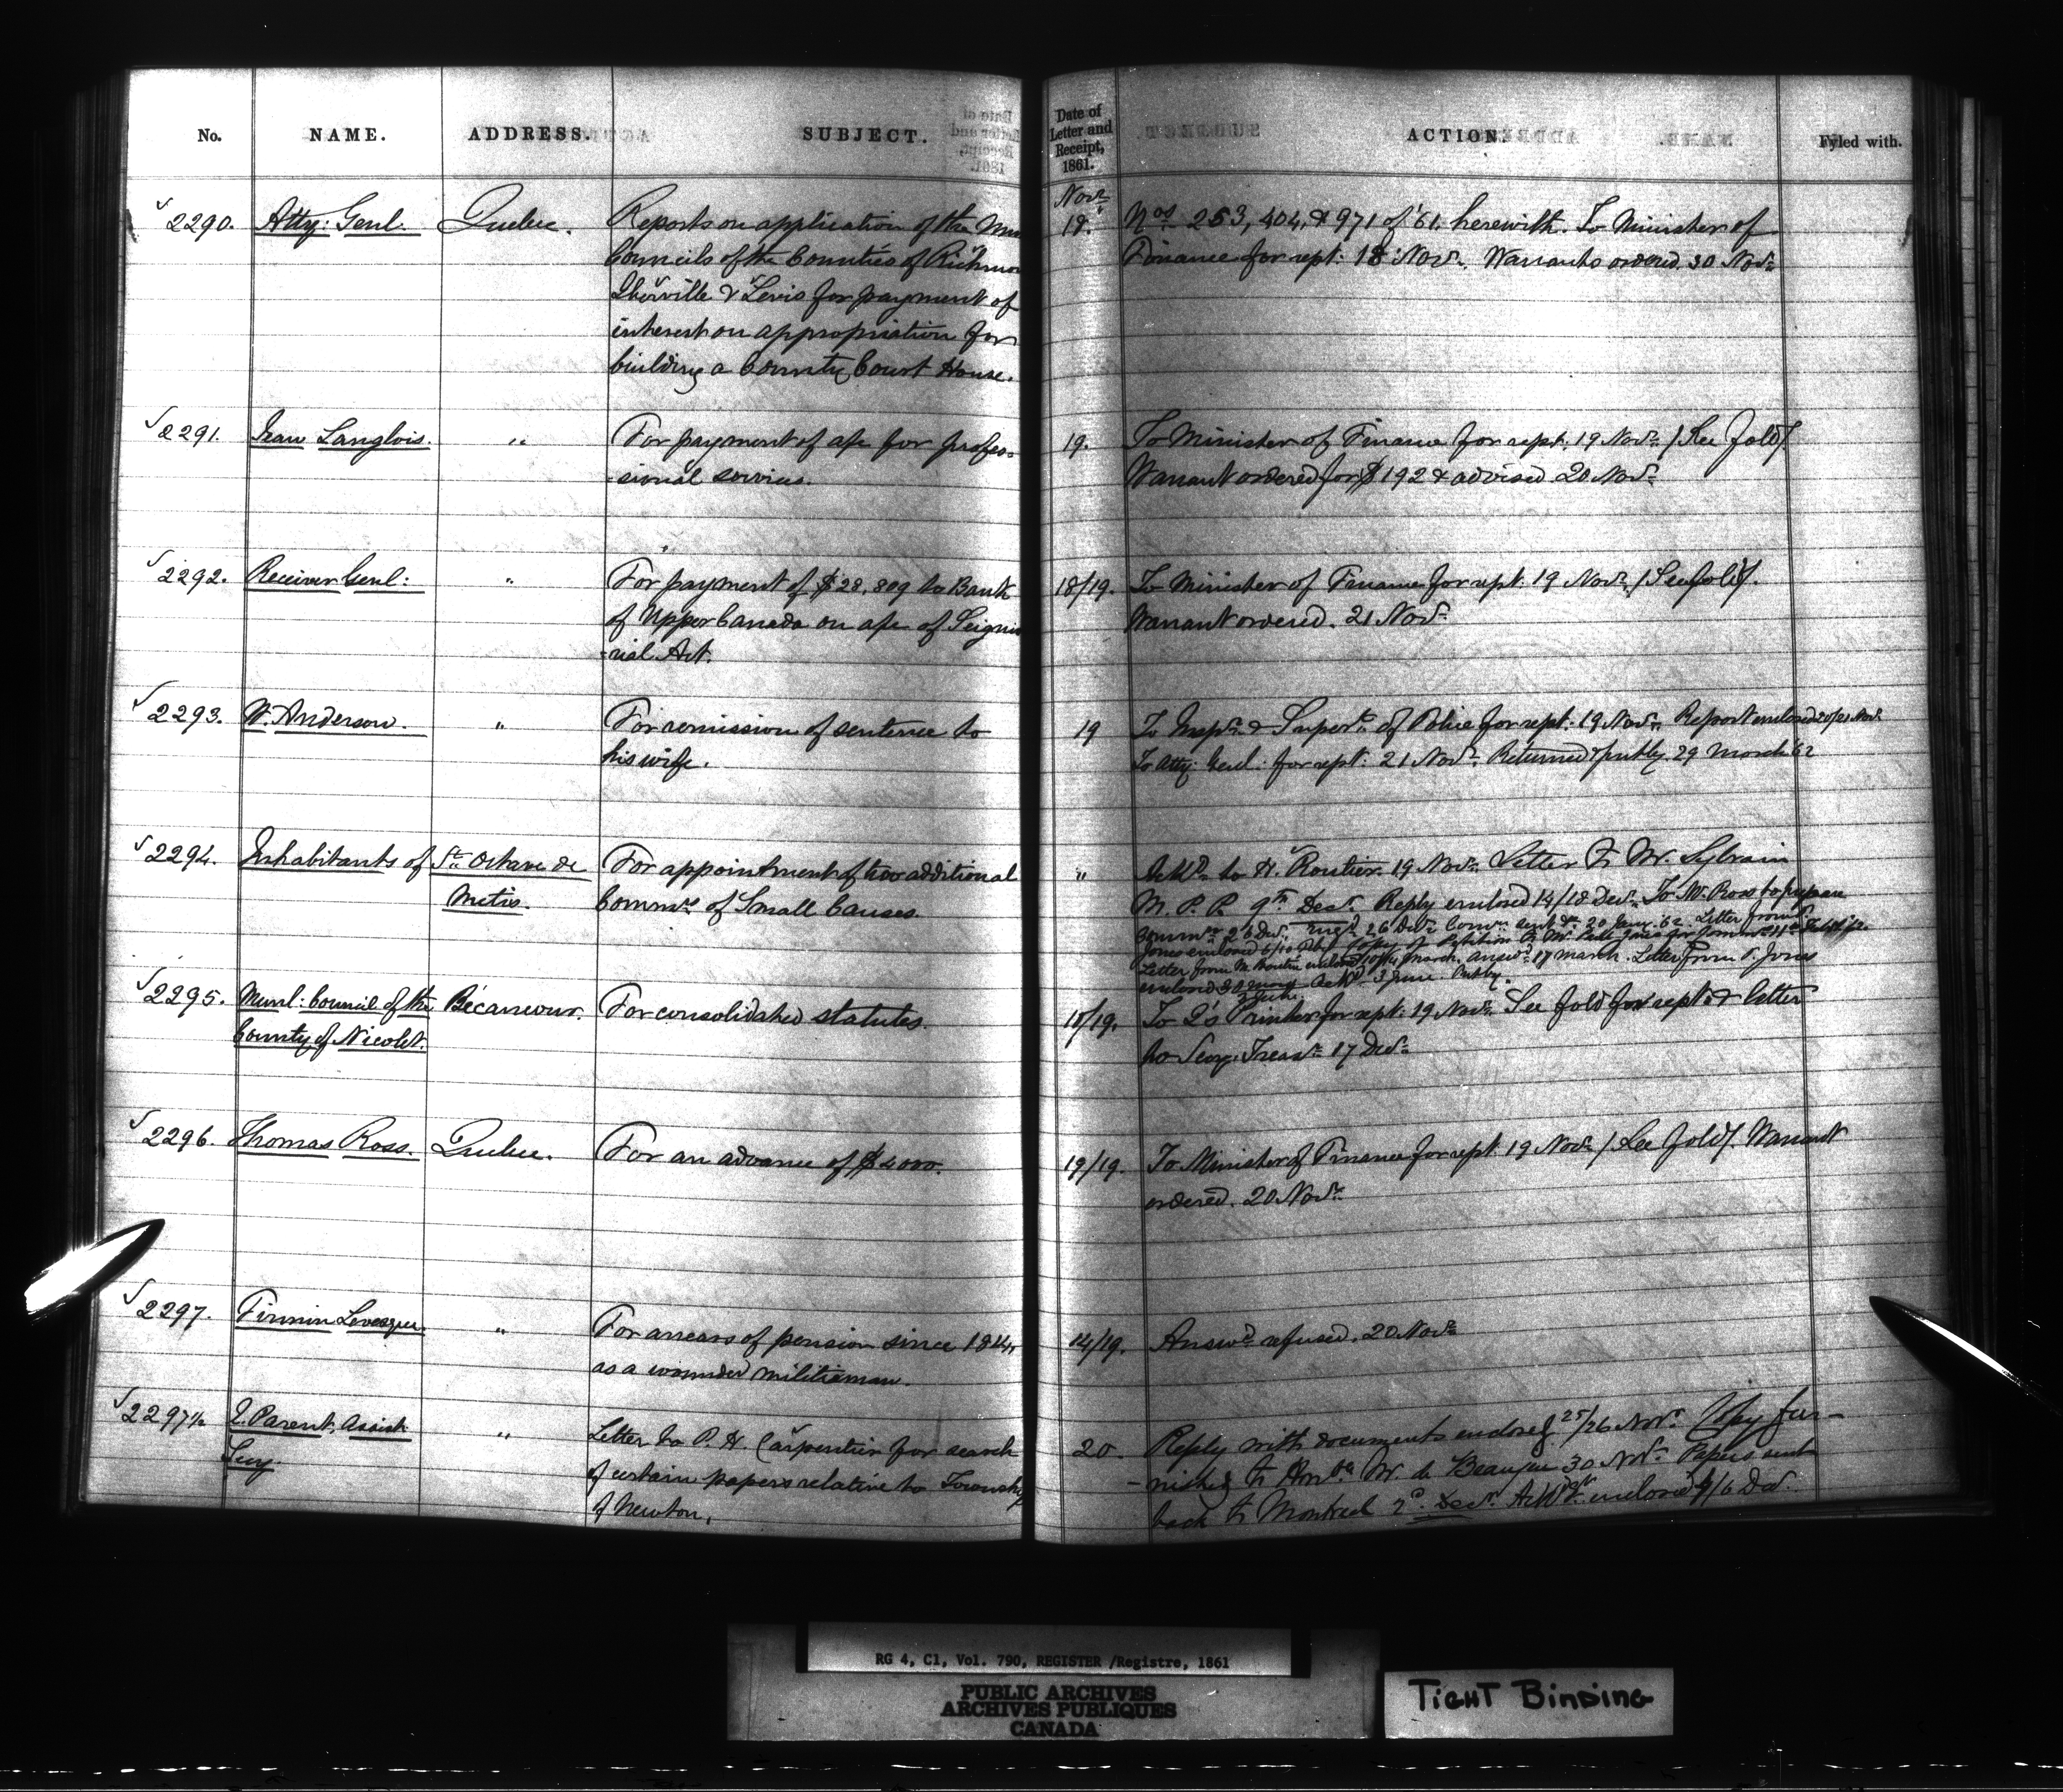 No. NAME. ADDRESS. SUBJECT. Date of Letter and Receipt, 1861. ACTION. Fyled with.
Novr
2290. Atty: Genl. Quebec. Reports on application of the 18. Nos 253, 404, & 971 of '61. herewith. To Minister of
Councils of the Counties of Finance for rept: 18 Novr. Warrants ordered 30 Novr
Iberville & Levis for payment of
interest on appropriation for
building a County Court House.
2291. Jean Langlois. " For payment of a/c for profes- 19. To Minister of Finance for rept: 19 Novr. / See fold /.
-sional services. Warrant ordered for $192 & advised 20 Novr
2292. Receiver Genl: " For payment of $28,809 to Bank 18/19. To Minister of Finance for rept: 19 Novr. / See fold /.
of Upper Canada on a/c of
-rial Act. Warrant ordered. 21 Novr
2293. W. Anderson. " For remission of sentence to 19 To Inspr & Supert of Police for rept: 19 Novr. Report enclosed 20/21 Novr
his wife. To Atty: Genl: for rept: 21 Novr. Returned & putby. 29 March '62
2294. Inhabitants of Ste Octave de For appointment of two additional " Ackd to H. Routier 19 Novr. Letter to Mr. Sylvain
Metis. Commrs of Small Causes. M. P. P. 9th Decr. Reply enclosed 14/18 Decr. To Mr. Ross to prepare
Commn 26 Decr. 26 Decr Commn sent 20 Jany. '62. Letter from
Jones enclosed Copy of Petition to Mr.
Letter from enclosed March. Answd 17 March. Letter from S. Jones
enclosed Ackd 3 June. Putby.
2295. Munl: Council of the Bécancour. For consolidated statutes. 18/19. To Q's Printer for rept: 19 Novr. See fold for rept & letter
County of Nicolet. to Secy. Treasr 17 Decr
2296. Thomas Ross. Quebec. For an advance of $4000. 19/19. To Minister of Finance for rept: 19 Novr / See fold /. Warrant
ordered. 20 Novr
2297. Firmin Levesque. " For arrears of pension since 1814, 14/19. Answd refused. 20 Novr
as a wounded militiaman.
2297½ E. Parent, Assist " Letter to P. H. Carpentier for search 20. Reply with documents enclosed 25/26 Novr. Copy fur-
Secy. of certain papers relative to Township -nished to Honble Mr. de Beaujeu 30 Novr. Papers sent
of Newton. back to Montreal 2d Decr. enclosed 4/6 Decr.
RG 4, C1, Vol. 790, REGISTER /Registre, 1861
PUBLIC ARCHIVES
ARCHIVES PUBLIQUES
CANADA
TIGHT BINDING